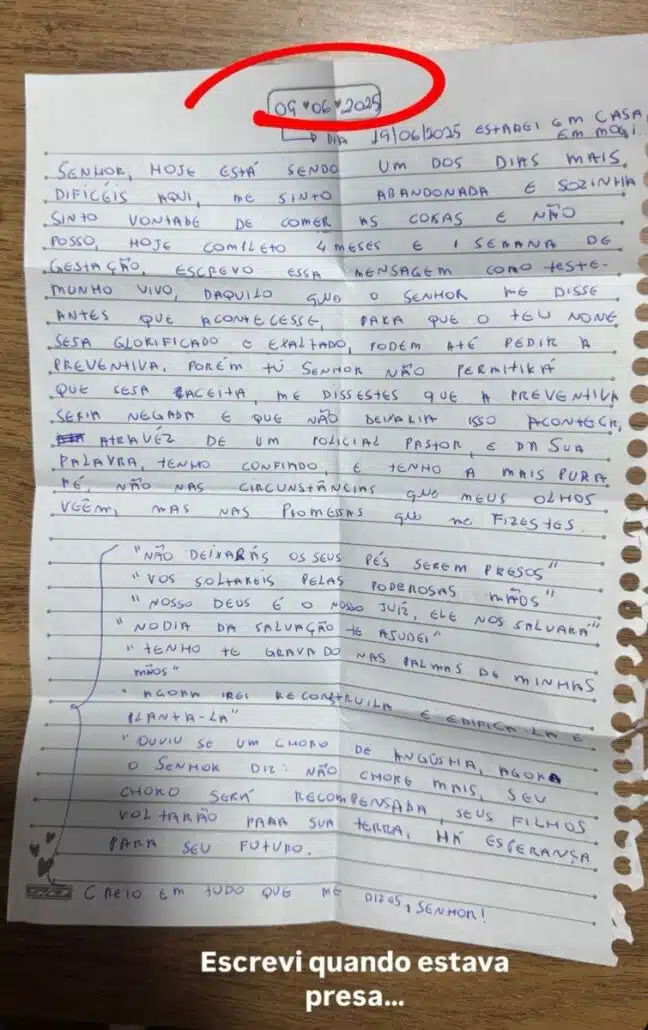 09 ♥ 06 ♥ 2025
DIA 19/06/2025 ESTAREI EM CASA,
EM MOGI.
SENHOR, HOJE ESTÁ SENDO UM DOS DIAS MAIS
DIFÍCEIS AQUI, ME SINTO ABANDONADA E SOZINHA
SINTO VONTADE DE COMER AS COISAS E NÃO
POSSO, HOJE COMPLETO 4 MESES E 1 SEMANA DE
GESTAÇÃO, ESCREVO ESSA MENSAGEM COMO TESTE-
MUNHO VIVO, DAQUILO QUE O SENHOR ME DISSE
ANTES QUE ACONTECESSE, PARA QUE O TEU NOME
SEJA GLORIFICADO E EXALTADO, PODEM ATÉ PEDIR A
PREVENTIVA, PORÉM TÚ SENHOR NÃO PERMITIRÁ
QUE SEJA ACEITA, ME DISSESTES QUE A PREVENTIVA
SERIA NEGADA E QUE NÃO DEIXARIA ISSO ACONTECER,
ATRAVÉZ DE UM POLICIAL PASTOR, E DA SUA
PALAVRA, TENHO CONFIADO, E TENHO A MAIS PURA
FÉ, NÃO NAS CIRCUNSTÂNCIAS QUE MEUS OLHOS
VEÊM, MAS NAS PROMESSAS QUE ME FIZESTES.
"NÃO DEIXARÁS OS SEUS PÉS SEREM PRESOS"
"VOS SOLTAREIS PELAS PODEROSAS MÃOS"
"NOSSO DEUS É O NOSSO JUIZ, ELE NOS SALVARÁ"
"NO DIA DA SALVAÇÃO TE AJUDEI"
"TENHO TE GRAVADO NAS PALMAS DE MINHAS
MÃOS"
"AGORA IREI RECONSTRUILA E EDIFICA-LA E
PLANTA-LA"
"OUVIU SE UM CHORO DE ANGÚSTIA, AGORA
O SENHOR DIZ: NÃO CHORE MAIS, SEU
CHORO SERÁ RECOMPENSADA, SEUS FILHOS
VOLTARÃO PARA SUA TERRA, HÁ ESPERANÇA
PARA SEU FUTURO.
CREIO EM TUDO QUE ME DIZES, SENHOR!
Escrevi quando estava
presa...